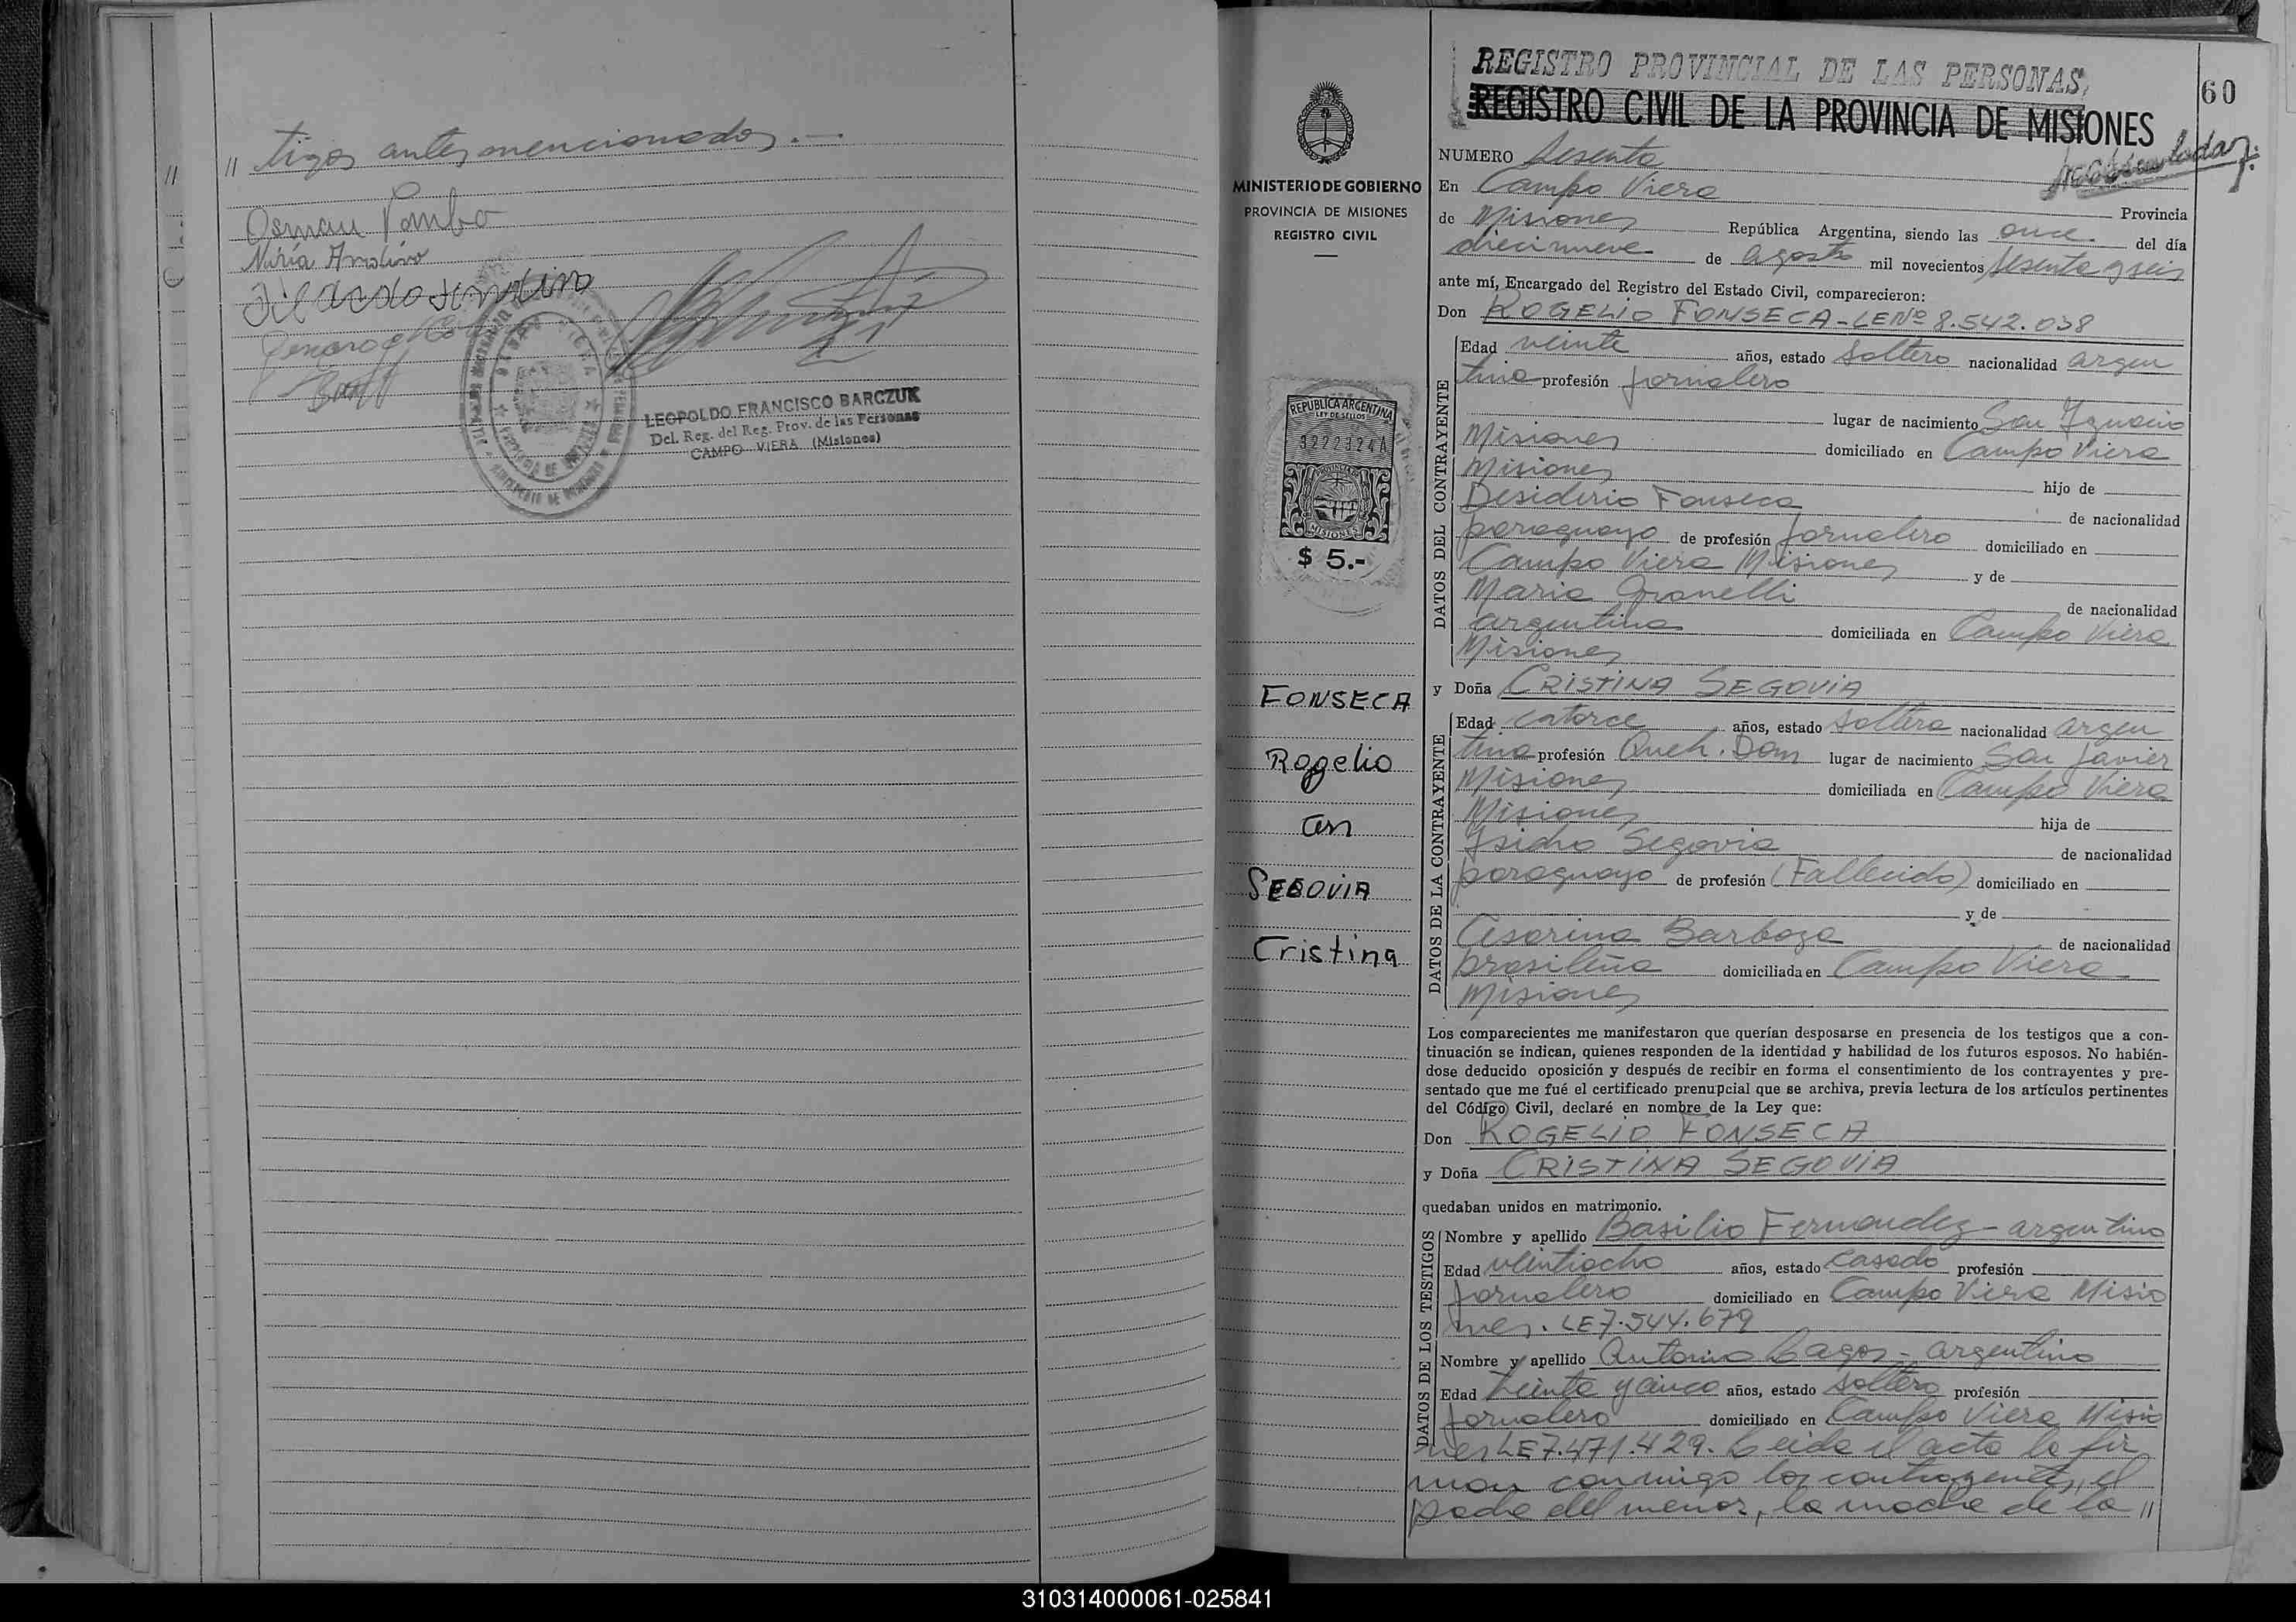 // tigos antes mencionados.—
Osmau Pombo
Niria Andino
LEOPOLDO FRANCISCO BARCZUK
Del. Reg. del Reg. Prov. de las Personas
CAMPO VIERA (Misiones)
MINISTERIO DE GOBIERNO
PROVINCIA DE MISIONES
REGISTRO CIVIL
REPUBLICA ARGENTINA
LEY DE SELLOS
3222324A
MISIONES
$ 5.-
FONSECA
Rogelio
con
SEGOVIA
Cristina
REGISTRO PROVINCIAL DE LAS PERSONAS
60
REGISTRO CIVIL DE LA PROVINCIA DE MISIONES
NUMERO Sesenta
En Campo Viera Provincia
de Misiones República Argentina, siendo las once del día
diecinueve de agosto mil novecientos sesenta y seis
ante mí, Encargado del Registro del Estado Civil, comparecieron:
Don ROGELIO FONSECA - LENº 8.542.038
DATOS DEL CONTRAYENTE
Edad veinte años, estado soltero nacionalidad argen
tina profesión jornalero
lugar de nacimiento San Ignacio
Misiones domiciliado en Campo Viera
Misiones hijo de
Desiderio Fonseca de nacionalidad
paraguayo de profesión jornalero domiciliado en
Campo Viera Misiones y de
Maria Granelli de nacionalidad
argentina domiciliada en Campo Viera
Misiones
y Doña CRISTINA SEGOVIA
DATOS DE LA CONTRAYENTE
Edad catorce años, estado soltera nacionalidad argen
tina profesión Queh. Dom lugar de nacimiento San Javier
Misiones domiciliada en Campo Viera
Misiones hija de
Ysidro Segovia de nacionalidad
paraguayo de profesión (Fallecido) domiciliado en
y de
Cesorina Barboza de nacionalidad
brasileña domiciliada en Campo Viera
Misiones
Los comparecientes me manifestaron que querían desposarse en presencia de los testigos que a con-
tinuación se indican, quienes responden de la identidad y habilidad de los futuros esposos. No habién-
dose deducido oposición y después de recibir en forma el consentimiento de los contrayentes y pre-
sentado que me fué el certificado prenupcial que se archiva, previa lectura de los artículos pertinentes
del Código Civil, declaré en nombre de la Ley que:
Don ROGELIO FONSECA
y Doña CRISTINA SEGOVIA
quedaban unidos en matrimonio.
DATOS DE LOS TESTIGOS
Nombre y apellido Basilio Fernandez - argentino
Edad veintiocho años, estado casado profesión
jornalero domiciliado en Campo Viera Misio
nes. LE 7.544.679
Nombre y apellido Antonio Lagos - argentino
Edad treinta y cinco años, estado soltero profesión
jornalero domiciliado en Campo Viera Misio
nes LE 7.471.429. Leida el acta la fir
man conmigo los contrayentes, el
padre del menor, la madre de la //
310314000061-025841